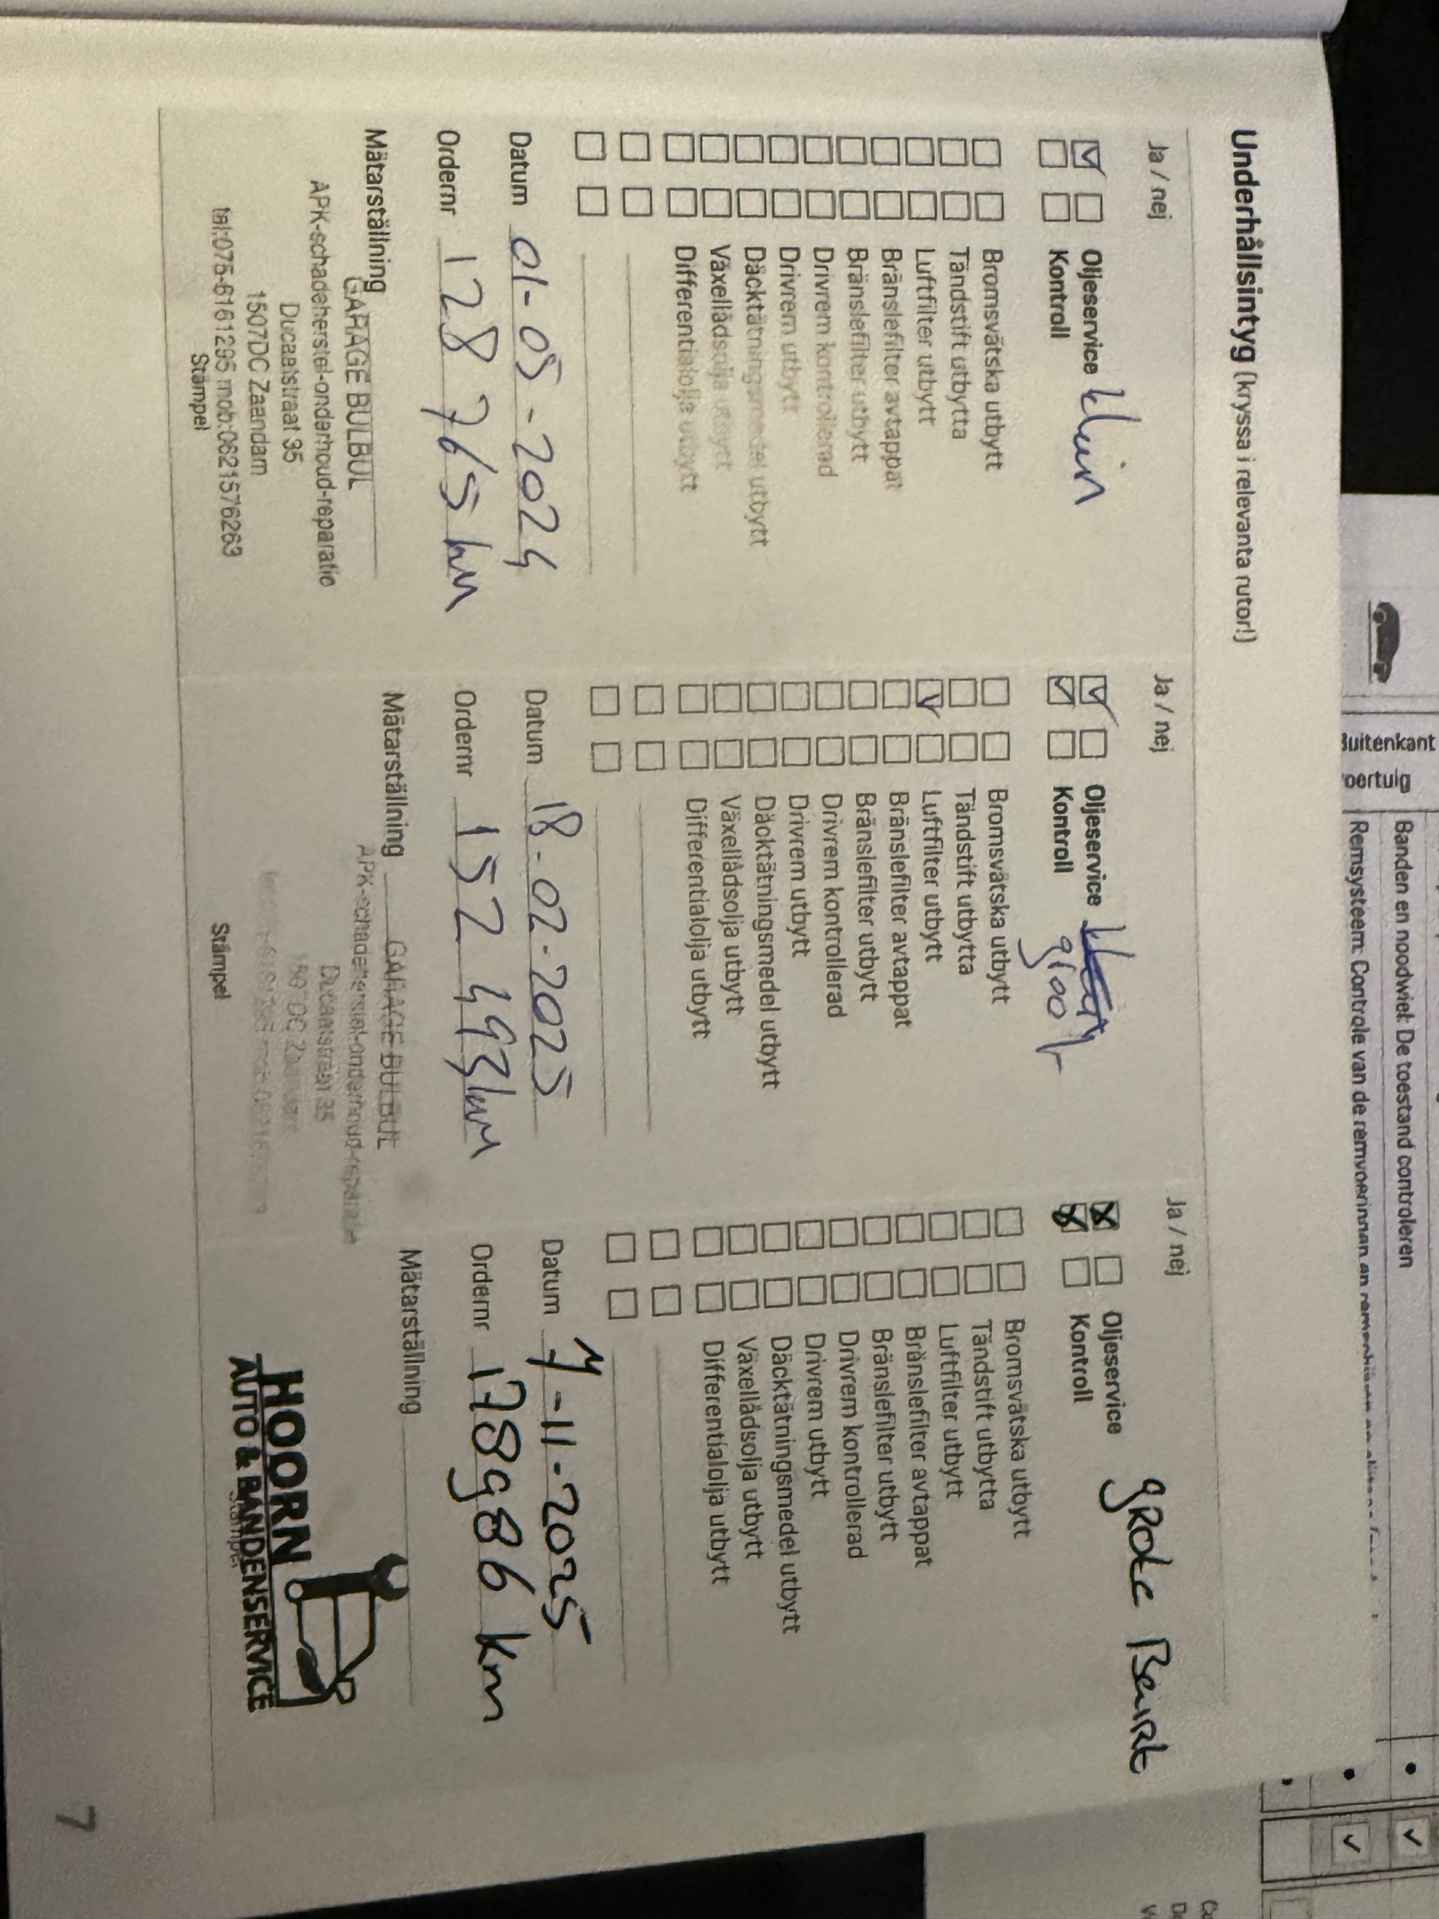 Underhållsintyg (kryssa i relevanta rutor!)
Ja / nej
Oljeservice klein
Kontroll
Bromsvätska utbytt
Tändstift utbytta
Luftfilter utbytt
Bränslefilter avtappat
Bränslefilter utbytt
Drivrem kontrollerad
Drivrem utbytt
Däcktätningsmedel utbytt
Växellådsolja utbytt
Differentialolja utbytt
Datum 01-05-2024
Ordernr 128765 km
Mätarställning
GARAGE BULBUL
APK-schadeherstel-onderhoud-reparatie
Ducaatstraat 35
1507DC Zaandam
tel:075-6161295 mob:0621576263
Stämpel
Ja / nej
Oljeservice
Kontroll groot
Bromsvätska utbytt
Tändstift utbytta
Luftfilter utbytt
Bränslefilter avtappat
Bränslefilter utbytt
Drivrem kontrollerad
Drivrem utbytt
Däcktätningsmedel utbytt
Växellådsolja utbytt
Differentialolja utbytt
Datum 18-02-2025
Ordernr 152493 km
Mätarställning
GARAGE BULBUL
APK-schadeherstel-onderhoud-reparatie
Ducaatstraat 35
1507DC Zaandam
Stämpel
Ja / nej
Oljeservice grote Beurt
Kontroll
Bromsvätska utbytt
Tändstift utbytta
Luftfilter utbytt
Bränslefilter avtappat
Bränslefilter utbytt
Drivrem kontrollerad
Drivrem utbytt
Däcktätningsmedel utbytt
Växellådsolja utbytt
Differentialolja utbytt
Datum 4-11-2025
Ordernr 178986 km
Mätarställning
HOORN
AUTO & BANDENSERVICE
Stämpel
7
Buitenkant
Banden en noodwiel: De toestand controleren
Remsysteem: Controle van de remvoeringen en